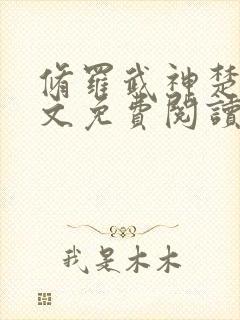 脩羅武神楚
文免費閱讀
我是木木